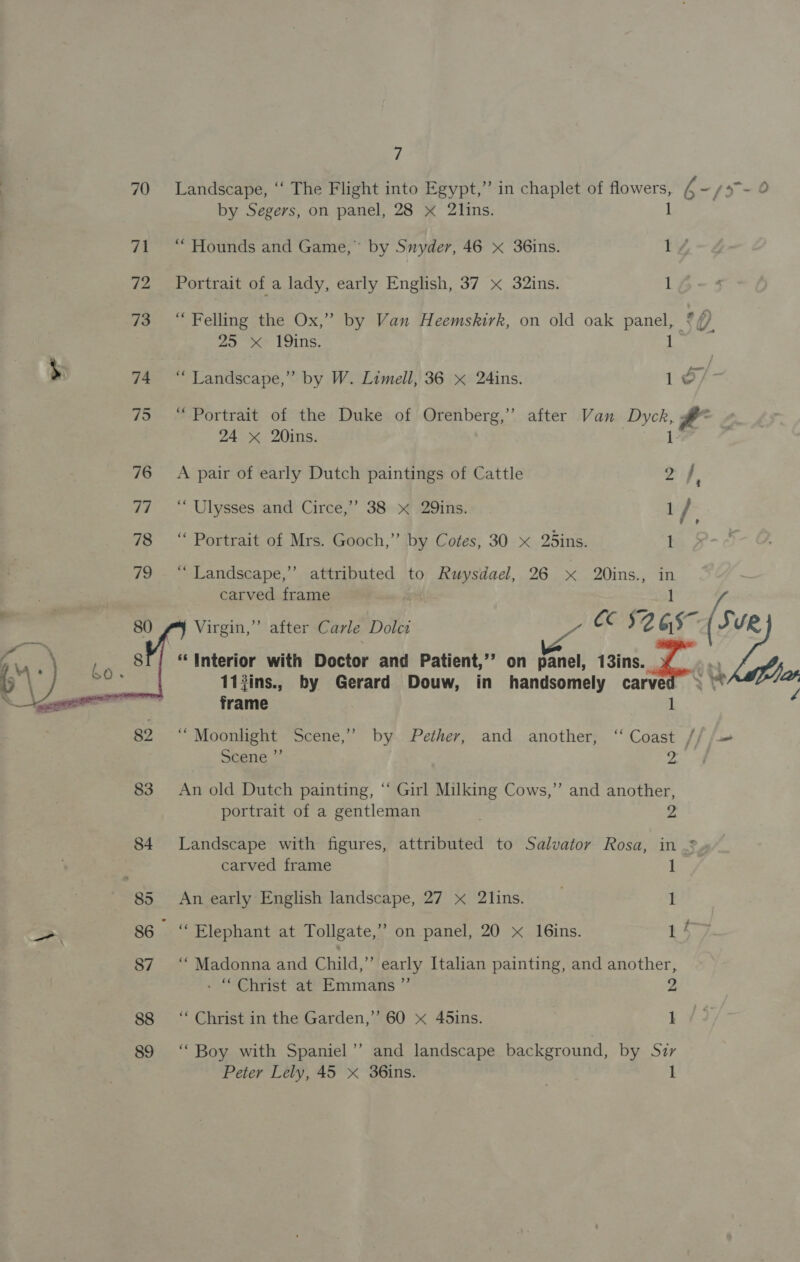 7
70 Landscape, “ The Flight into Egypt,” in chaplet of flowers,
by Segers, on panel, 28 × 21ins. 1
71 “ Hounds and Game,” by Snyder, 46 × 36ins. 1
72 Portrait of a lady, early English, 37 × 32ins. 1
73 “ Felling the Ox,” by Van Heemskirk, on old oak panel,
25 × 19ins. 1
74 “ Landscape,” by W. Limell, 36 × 24ins. 1
75 “ Portrait of the Duke of Orenberg,” after Van Dyck,
24 × 20ins. 1
76 A pair of early Dutch paintings of Cattle 2
77 “ Ulysses and Circe,” 38 × 29ins. 1
78 “ Portrait of Mrs. Gooch,” by Cotes, 30 × 25ins. 1
79 “ Landscape,” attributed to Ruysdael, 26 × 20ins., in
carved frame 1
80 Virgin,” after Carle Dolci
CC 5265 (SUR)
60.
81 “ Interior with Doctor and Patient,” on panel, 13ins.
11¾ins., by Gerard Douw, in handsomely carved
frame 1
82 “ Moonlight Scene,” by Pether, and another, “ Coast
Scene ” 2
83 An old Dutch painting, “ Girl Milking Cows,” and another,
portrait of a gentleman 2
84 Landscape with figures, attributed to Salvator Rosa, in
carved frame 1
85 An early English landscape, 27 × 21ins. 1
86 “ Elephant at Tollgate,” on panel, 20 × 16ins. 1
87 “ Madonna and Child,” early Italian painting, and another,
“ Christ at Emmans ” 2
88 “ Christ in the Garden,” 60 × 45ins. 1
89 “ Boy with Spaniel ” and landscape background, by Sir
Peter Lely, 45 × 36ins. 1